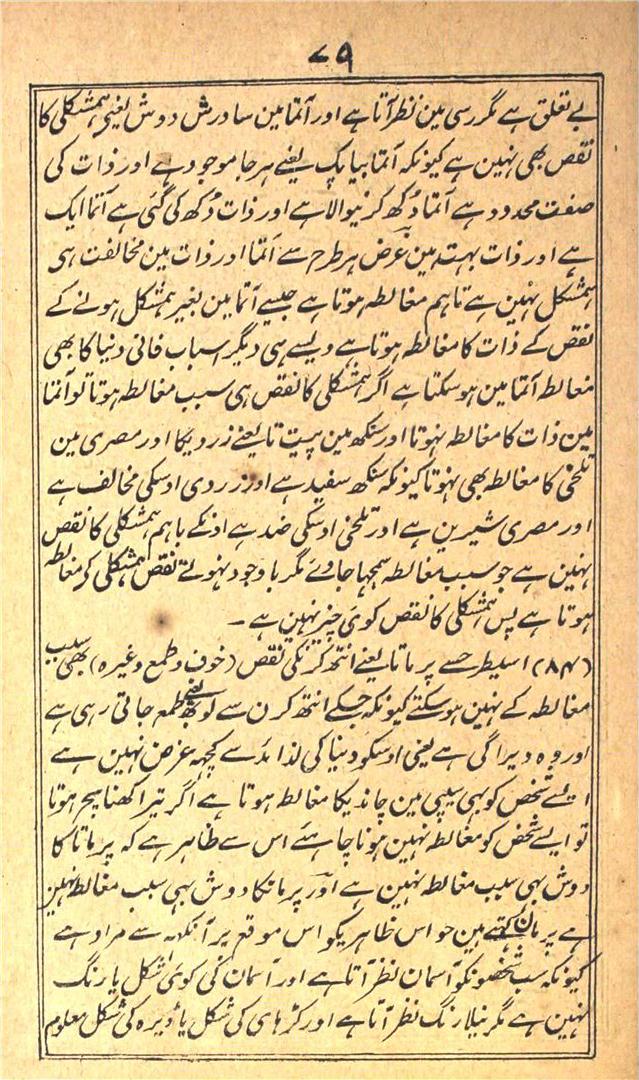 ۷۹
بے تعلق ہے مگر رسی مین نظر آتا ہے اور آتما مین سادرش دوش یعنی ہمشکلی کا
نقص بھی نہین ہے کیونکہ آتما بیاپک یعنے ہر جا موجود ہے اور ذات کی
صفت محدود ہے آتما دُکھ کرنیوالا ہے اور ذات دُکھ کی گئی ہے آتما ایک
ہے اور ذات بہت ہین غرض ہر طرح سے آتما اور ذات مین مخالفت ہی
ہمشکل نہین ہے تاہم مغالطہ ہوتا ہے جیسے آتما مین بغیر ہمشکل ہونے کے
نقص کے ذات کا مغالطہ ہوتا ہے ویسے ہی دیگر اسباب فانی دنیا کا بھی
مغالطہ آتما مین ہو سکتا ہے اگر ہمشکلی کا نقص ہی سبب مغالطہ ہوتا تو آتما
مین ذات کا مغالطہ نہوتا اور سنکھ مین پیت تا یعنے زردیکا اور مصری مین
تلخی کا مغالطہ بھی نہوتا کیونکہ سنکھ سفید ہے اور زردی اوسکی مخالف ہے
اور مصری شیرین ہے اور تلخی اوسکی ضد ہے اونکے باہم ہمشکلی کا نقص
نہین ہے جو سبب مغالطہ سمجہا جاوے مگر باوجود نہونے نقص ہمشکلی کے مغالطہ
ہوتا ہے پس ہمشکلی کا نقص کوئ چیز نہین ہے ۔
(۸۴) اسیطرحسے پرماتا یعنے انتھ کرنکی نقص (خوف و طمع وغیرہ) بھی سبب
مغالطہ کے نہین ہو سکتے کیونکہ جسکے انتھ کرن سے لوبھ یعنے طمع جاتی رہی ہے
اور وہ ویراگی ہے یعنی اوسکو دنیا کی لذائذ سے کچہہ غرض نہین ہے
ایسے شخص کو بہی سیپی مین چاندیکا مغالطہ ہوتا ہے اگر تیرا کھنا سچ ہوتا
تو ایسے شخص کو مغالطہ نہین ہونا چاہئے اس سے ظاہر ہے کہ پرماتا کا
دوش بہی سبب مغالطہ نہین ہے اور پرمانکا دوش بہی سبب مغالطہ نہین
ہے پرمان کہتے ہین حواس ظاہریکو اس موقع پر آنکہہ سے مراد ہے
کیونکہ سب شخصونکو آسمان نظر آتا ہے اور آسمان کی کوئ شکل یا رنگ
نہین ہے مگر نیلا رنگ نظر آتا ہے اور کڑھای کی شکل یا ڈیرہ کی شکل معلوم